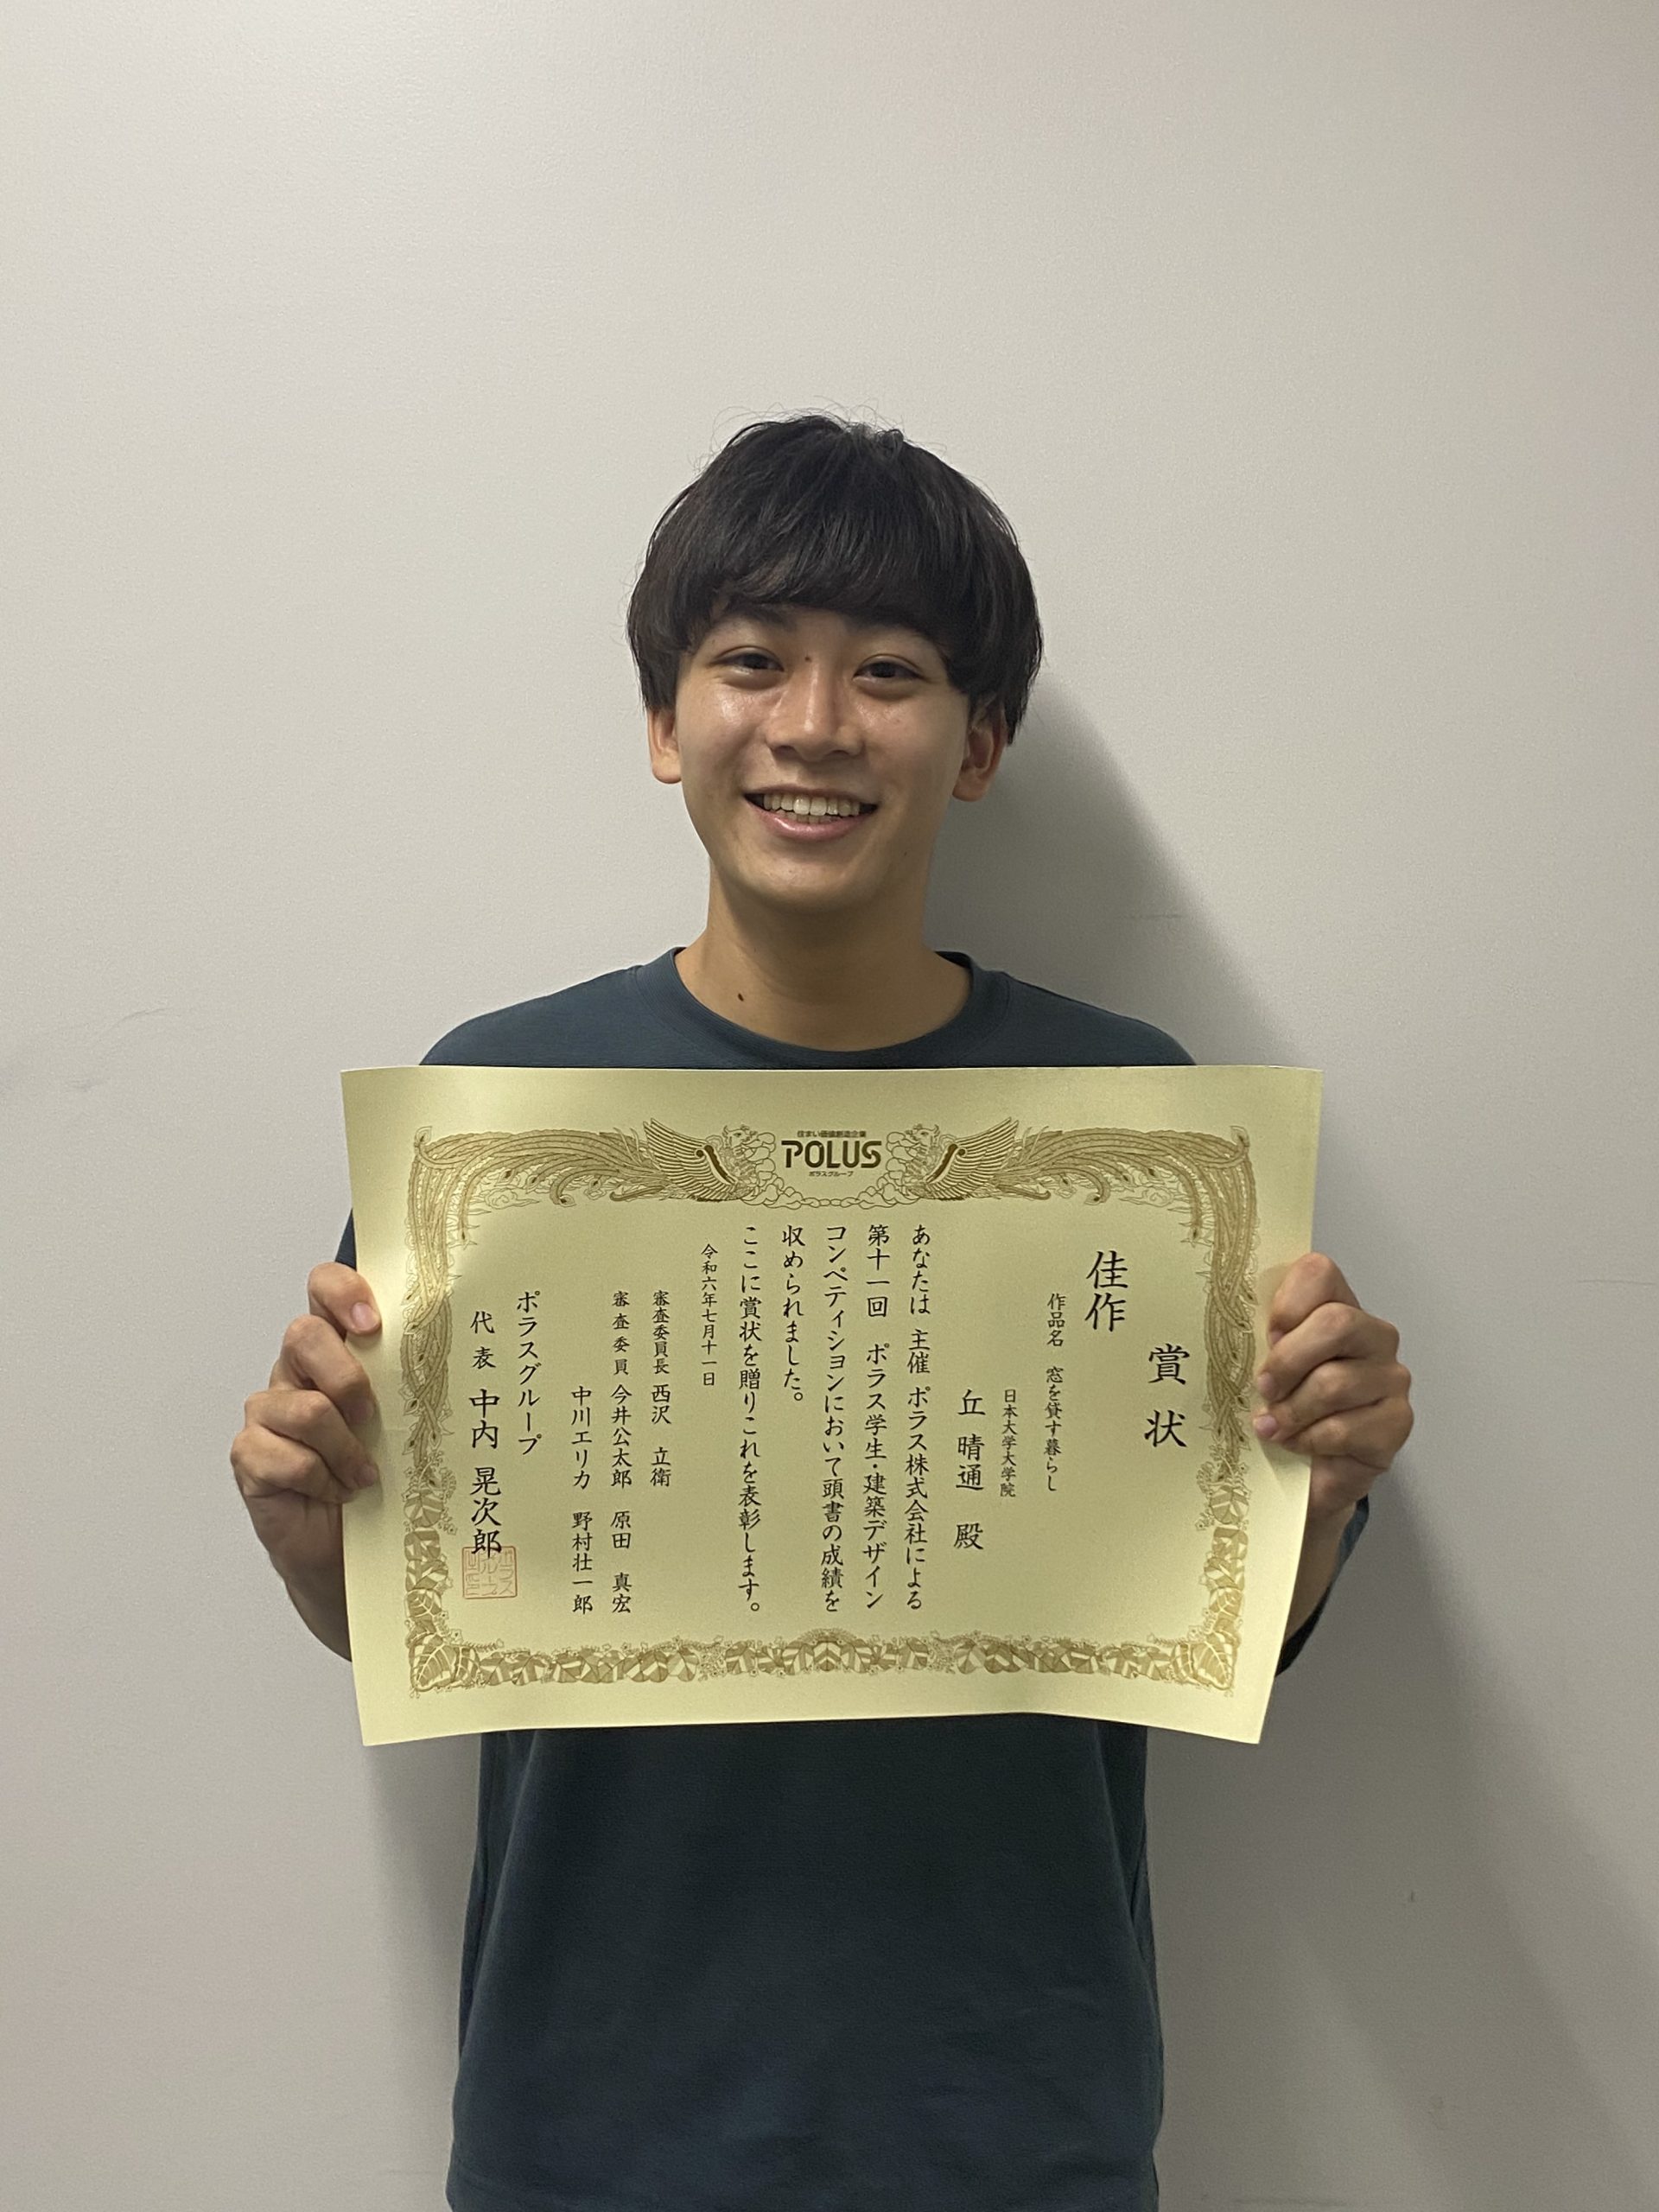 住まい価値創造企業
POLUS
ポラスグループ
賞状
佳作
作品名 窓を貸す暮らし
日本大学大学院
丘 晴通 殿
あなたは 主催 ポラス株式会社による
第十一回 ポラス学生・建築デザイン
コンペティションにおいて頭書の成績を
収められました。
ここに賞状を贈りこれを表彰します。
令和六年七月十一日
審査委員長 西沢 立衛
審査委員 今井公太郎 原田 真宏
中川エリカ 野村壮一郎
ポラスグループ
代表 中内 晃次郎